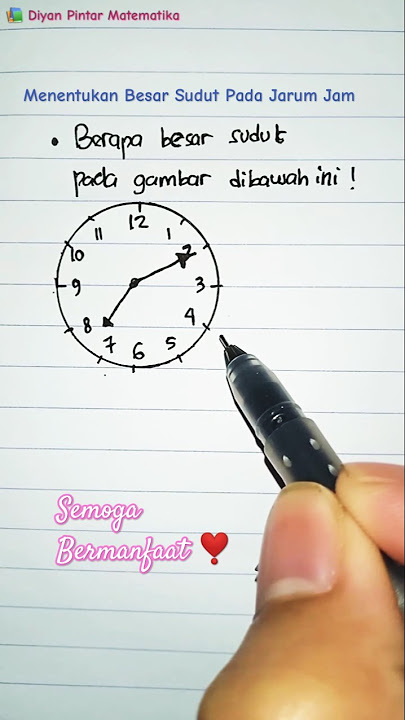 Diyan Pintar Matematika
Menentukan Besar Sudut Pada Jarum Jam
• Berapa besar sudut
pada gambar dibawah ini !
12
11 1
10 2
9 3
8 4
7 6 5
Semoga
Bermanfaat